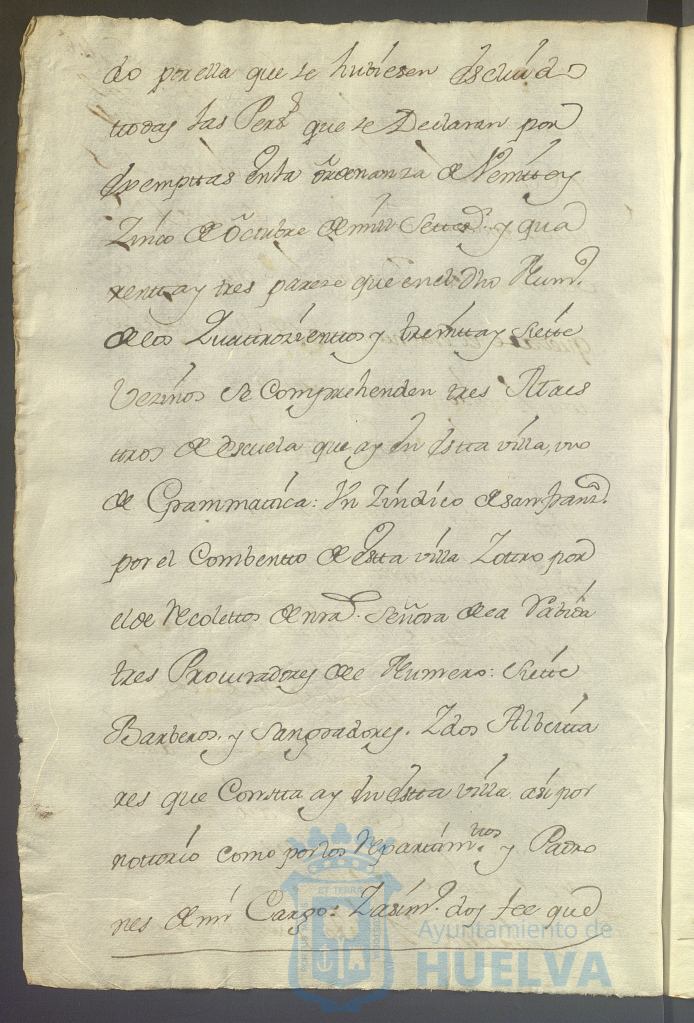 do por ella que se hubiesen escluido
ttodas las Pers.s que se Declaran por
exempttas En la ordenanza de Veintte y
Zinco de Octubre de mill Settez.s y qua
rentta y tres pareze que en el dho Num.o
de los Quattrozienttos y treintta y Siette
Vezinos se Comprehenden tres Maes
ttros de escuela que ay En Estta villa, vno
de Grammatica: Un Zindico de San Franz.co
por el Combentto de Estta villa Y ottro por
el de Recolettos de nra. Señora de la Rabida
tres Procuradores de Numero: Siette
Barberos. y Sangradores. Y dos Albeitta
res que Constta ay En Estta villa asi por
nottorio como por los Repartim.ttos y Padro
nes de mi Cargo: Y asim.o doy fee que
Ayuntamiento de
HUELVA